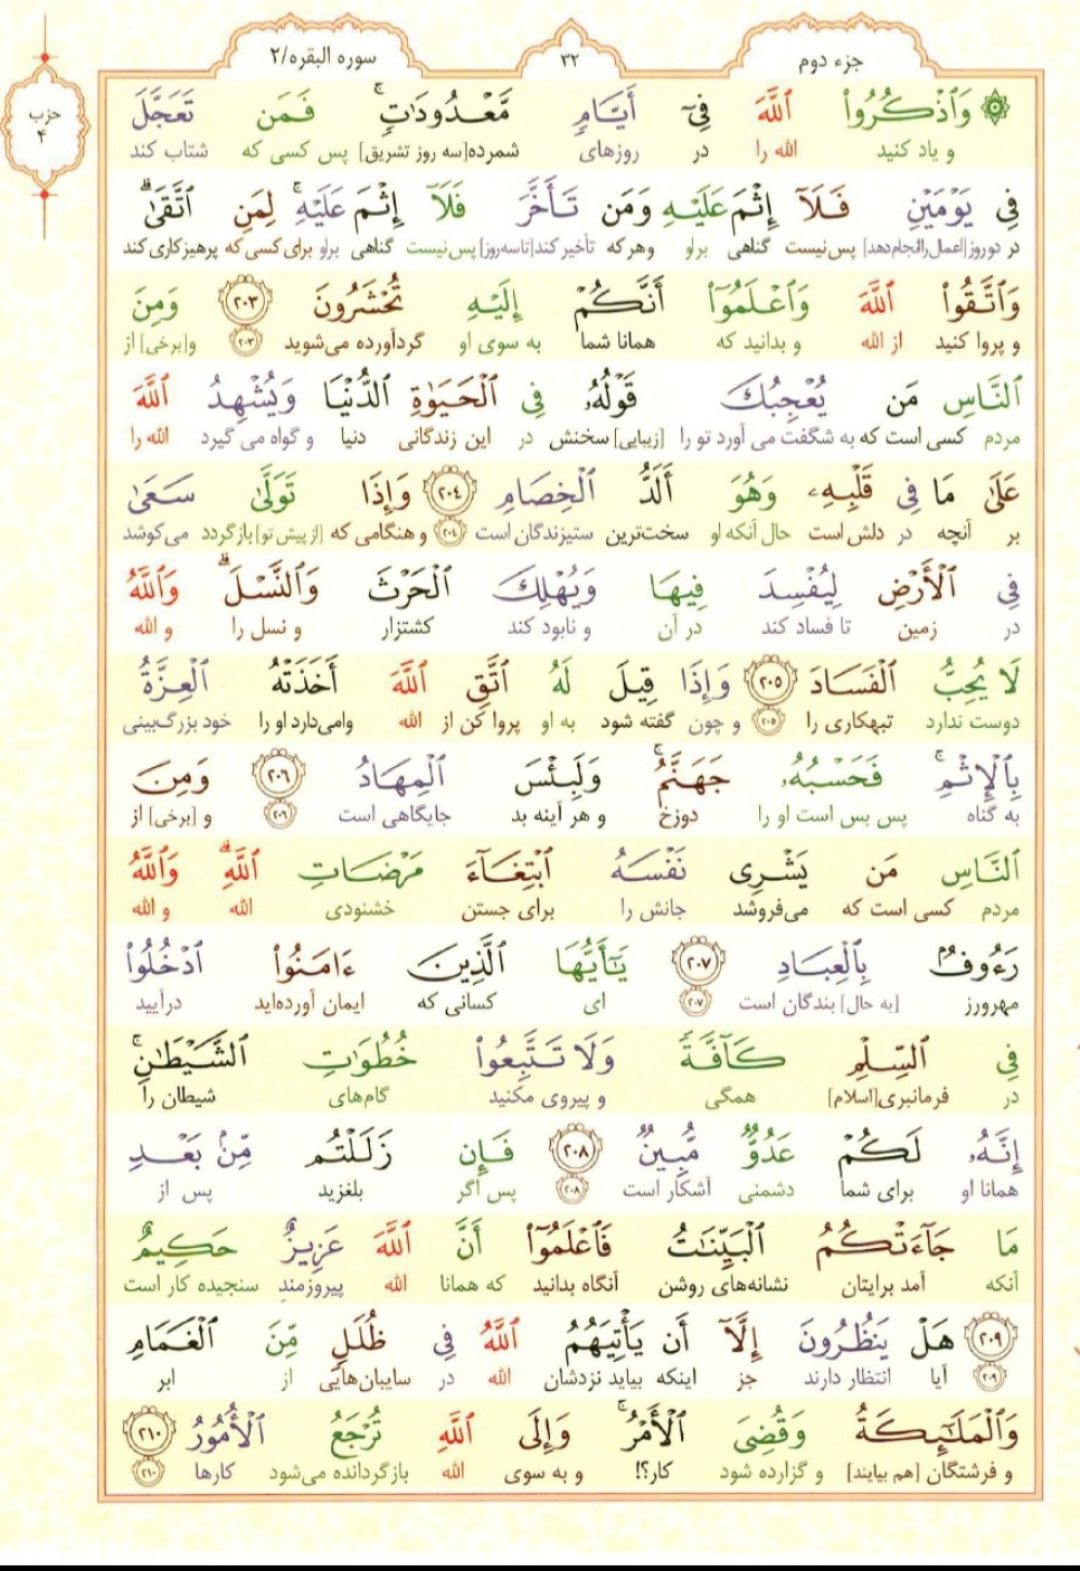 جزء دوم
۳۲
سوره البقره/۲
حزب
۴
۞ وَٱذْكُرُوا۟ ٱللَّهَ فِىٓ أَيَّامٍ مَّعْدُودَٰتٍ ۚ فَمَن تَعَجَّلَ
و یاد کنید الله را در روزهای شمرده[سه روز تشریق] پس کسی که شتاب کند
فِى يَوْمَيْنِ فَلَآ إِثْمَ عَلَيْهِ وَمَن تَأَخَّرَ فَلَآ إِثْمَ عَلَيْهِ ۚ لِمَنِ ٱتَّقَىٰ ۗ
در دو روز[اعمال را انجام دهد] پس نیست گناهی بر او و هر که تأخیر کند[تا سه روز] پس نیست گناهی بر او برای کسی که پرهیزکاری کند
وَٱتَّقُوا۟ ٱللَّهَ وَٱعْلَمُوٓا۟ أَنَّكُمْ إِلَيْهِ تُحْشَرُونَ ٢٠٣ وَمِنَ
و پروا کنید از الله و بدانید که همانا شما به سوی او گردآورده می‌شوید ۲۰۳ و[برخی] از
ٱلنَّاسِ مَن يُعْجِبُكَ قَوْلُهُۥ فِى ٱلْحَيَوٰةِ ٱلدُّنْيَا وَيُشْهِدُ ٱللَّهَ
مردم کسی است که به شگفت می آورد تو را [زیبایی] سخنش در این زندگانی دنیا و گواه می گیرد الله را
عَلَىٰ مَا فِى قَلْبِهِۦ وَهُوَ أَلَدُّ ٱلْخِصَامِ ٢٠٤ وَإِذَا تَوَلَّىٰ سَعَىٰ
بر آنچه در دلش است حال آنکه او سخت‌ترین ستیزندگان است ۲۰۴ و هنگامی که [از پیش تو] بازگردد می‌کوشد
فِى ٱلْأَرْضِ لِيُفْسِدَ فِيهَا وَيُهْلِكَ ٱلْحَرْثَ وَٱلنَّسْلَ ۗ وَٱللَّهُ
در زمین تا فساد کند در آن و نابود کند کشتزار و نسل را و الله
لَا يُحِبُّ ٱلْفَسَادَ ٢٠٥ وَإِذَا قِيلَ لَهُ ٱتَّقِ ٱللَّهَ أَخَذَتْهُ ٱلْعِزَّةُ
دوست ندارد تبهکاری را ۲۰۵ و چون گفته شود به او پروا کن از الله وامی‌دارد او را خود بزرگ‌بینی
بِٱلْإِثْمِ ۚ فَحَسْبُهُۥ جَهَنَّمُ ۚ وَلَبِئْسَ ٱلْمِهَادُ ٢٠٦ وَمِنَ
به گناه پس بس است او را دوزخ و هر آینه بد جایگاهی است ۲۰۶ و [برخی] از
ٱلنَّاسِ مَن يَشْرِى نَفْسَهُ ٱبْتِغَآءَ مَرْضَاتِ ٱللَّهِ ۗ وَٱللَّهُ
مردم کسی است که می‌فروشد جانش را برای جستن خشنودی الله و الله
رَءُوفٌۢ بِٱلْعِبَادِ ٢٠٧ يَٰٓأَيُّهَا ٱلَّذِينَ ءَامَنُوا۟ ٱدْخُلُوا۟
مهرورز [به حال] بندگان است ۲۰۷ ای کسانی که ایمان آورده‌اید درآیید
فِى ٱلسِّلْمِ كَآفَّةً وَلَا تَتَّبِعُوا۟ خُطُوَٰتِ ٱلشَّيْطَٰنِ ۚ
در فرمانبری[اسلام] همگی و پیروی مکنید گام‌های شیطان را
إِنَّهُۥ لَكُمْ عَدُوٌّ مُّبِينٌ ٢٠٨ فَإِن زَلَلْتُم مِّنۢ بَعْدِ
همانا او برای شما دشمنی آشکار است ۲۰۸ پس اگر بلغزید پس از
مَا جَآءَتْكُمُ ٱلْبَيِّنَٰتُ فَٱعْلَمُوٓا۟ أَنَّ ٱللَّهَ عَزِيزٌ حَكِيمٌ
آنکه آمد برایتان نشانه‌های روشن آنگاه بدانید که همانا الله پیروزمند سنجیده کار است
٢٠٩ هَلْ يَنظُرُونَ إِلَّآ أَن يَأْتِيَهُمُ ٱللَّهُ فِى ظُلَلٍ مِّنَ ٱلْغَمَامِ
۲۰۹ آیا انتظار دارند جز اینکه بیاید نزدشان الله در سایبان‌هایی از ابر
وَٱلْمَلَٰٓئِكَةُ وَقُضِىَ ٱلْأَمْرُ ۚ وَإِلَى ٱللَّهِ تُرْجَعُ ٱلْأُمُورُ ٢١٠
و فرشتگان [هم بیایند] و گزارده شود کار؟! و به سوی الله بازگردانده می‌شود کارها ۲۱۰